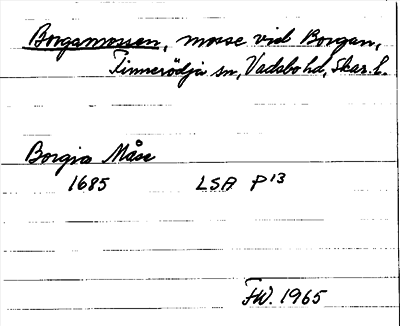 Borgamossen, mosse vid Borgan,
Finnerödja sn, Vadsbo hd, Skar. l.
Borgia Måse
1685 LSA P 13
FW. 1965